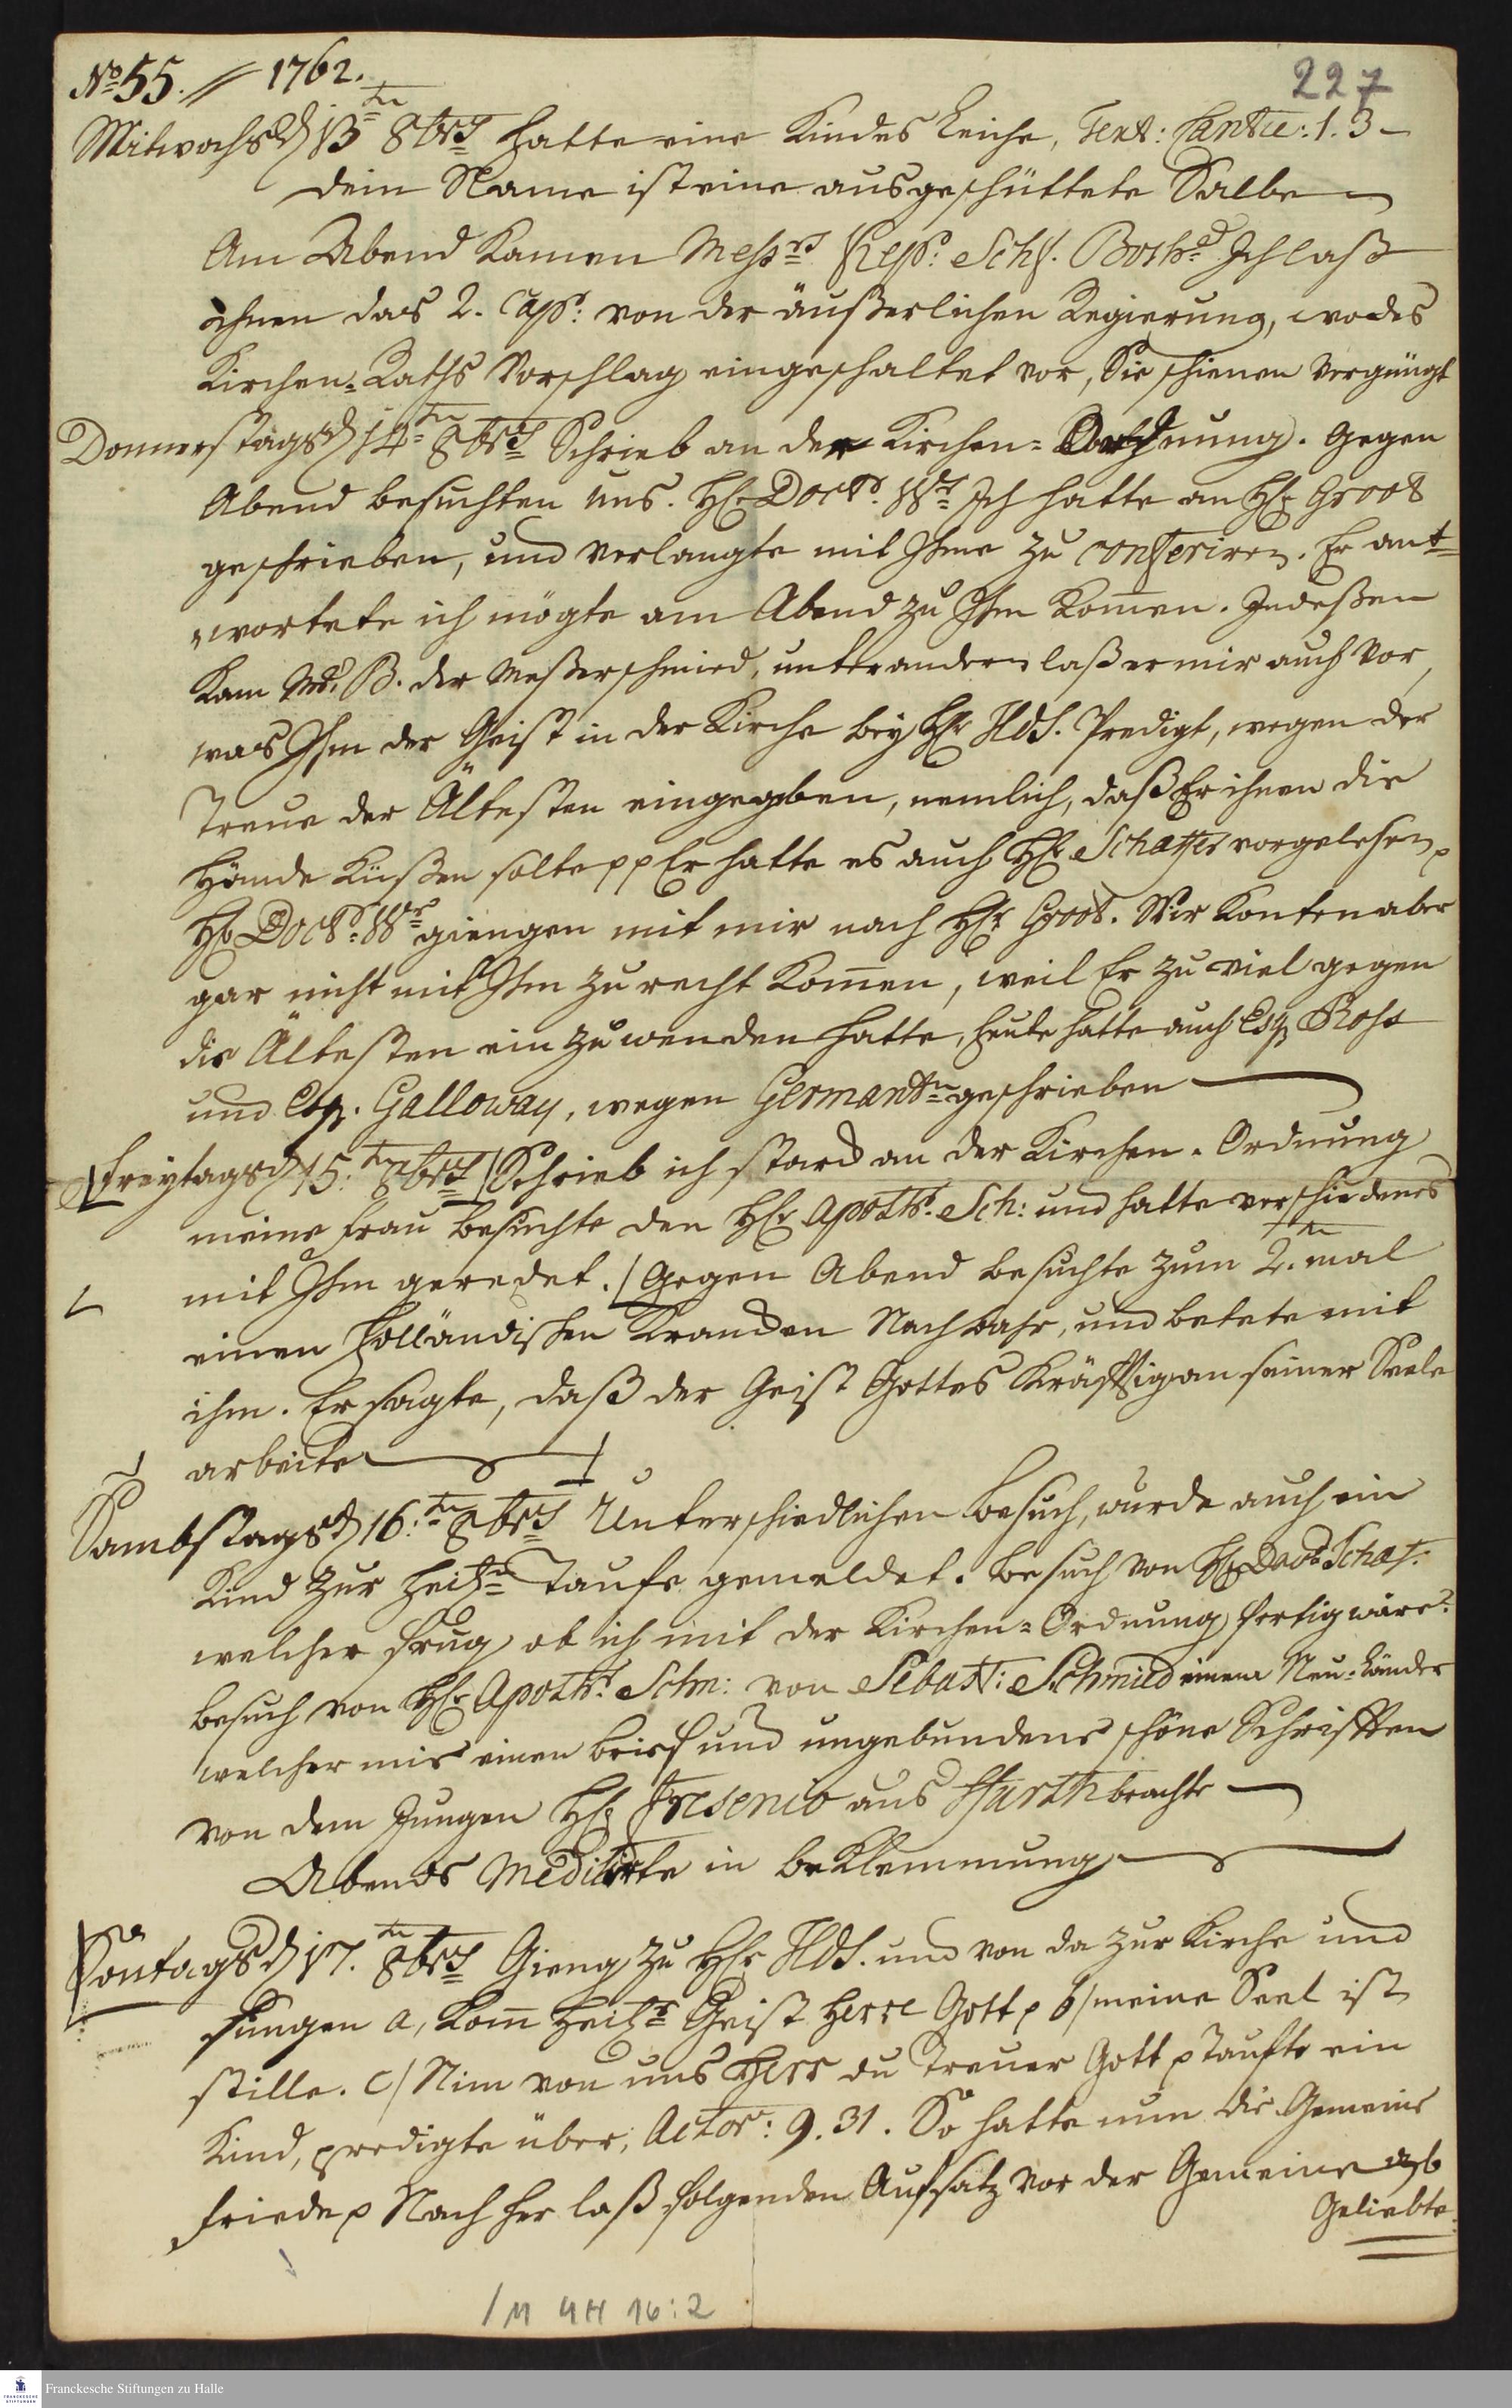 No 55. // 1762.
227
Mitwochs d 13tn 8brs hatte eine Kindes Leiche, Text: Cantic: 1. 3 –
dein Name ist eine ausgeschüttete Salbe
Am Abend kamen Messrs Kepp: Schf. Ich laß
ihnen das 2. Cap: von der äußerlichen Regierung, wo des
Kirchen-Raths Vorschlag eingeschaltet vor, Sie schienen vergnügt
Donnerstags d 14tn 8brs Schrieb an der Kirchen-Ordnung. Gegen
Abend besuchten uns. H. Doct. Wr. Ich hatte an H. Groot
geschrieben, und verlangte mit Ihme zu conferiren. Er ant-
wortete ich mögte am Abend zu Ihm kom̄en. Indeßen
kam B. der Meßerschmied, unter andern laß er mir auch vor,
was Ihm der Geist in der Kirche bey H. Hds. Predigt, wegen der
Treue der Ältesten eingegeben, nemlich, daß Er ihnen die
Hände küßen solte pp Er hatte es auch H. Schaffer vorgelesen
H. Doct. Wr. giengen mit mir nach H. Groot. Wir konten aber
gar nicht mit Ihm zu recht kom̄en, weil Er zu viel gegen
die Ältesten ein zu wenden hatte, heute hatte auch Esq. Ross
und Esq. Galloway, wegen Germantn geschrieben
Freytags d 15. tn 8brs Schrieb ich starck an der Kirchen-Ordnung
meine Frau besuchte den H. Apoth. Sch: und hatte verschiedenes
mit Ihm geredet. Gegen Abend besuchte zum 2.tn mal
einen holländischen krancken Nachbahr, und betete mit
ihm. Er sagte, daß der Geist Gottes kräfftig an seiner Seele
arbeite
Sambstags d 16. tn 8brs Unterschiedlichen Besuch, wurde auch ein
Kind zur heiln Taufe gemeldet. Besuch von H. David Schaf.
welcher frug, ob ich mit der Kirchen-Ordnung fertig wäre.
Besuch von H. Apoth. Schm: von Sebast: Schmied einem Neu-Länder
welcher mir einen Brief und ungebundene schöne Schrifften
von dem Jungen H. Fresenio aus Ffurth brachte
Abends meditirte in Beklemmung
Sontags d 17. tn 8brs Gieng zu H. Hds. und von da zur Kirche und
sungen a, Kom̄ heilr Geist Herre Gott p b/ meine Seel ist
stille. c/ Nim von uns Herr du treuer Gott p Taufte ein
Kind, predigte über, Actor: 9. 31. So hatte nun die Gemeine
Friede p Nach her laß folgenden Aufsatz vor der Gemeine ab
Geliebte
/ M 4 H 16:2
Franckesche Stiftungen zu Halle